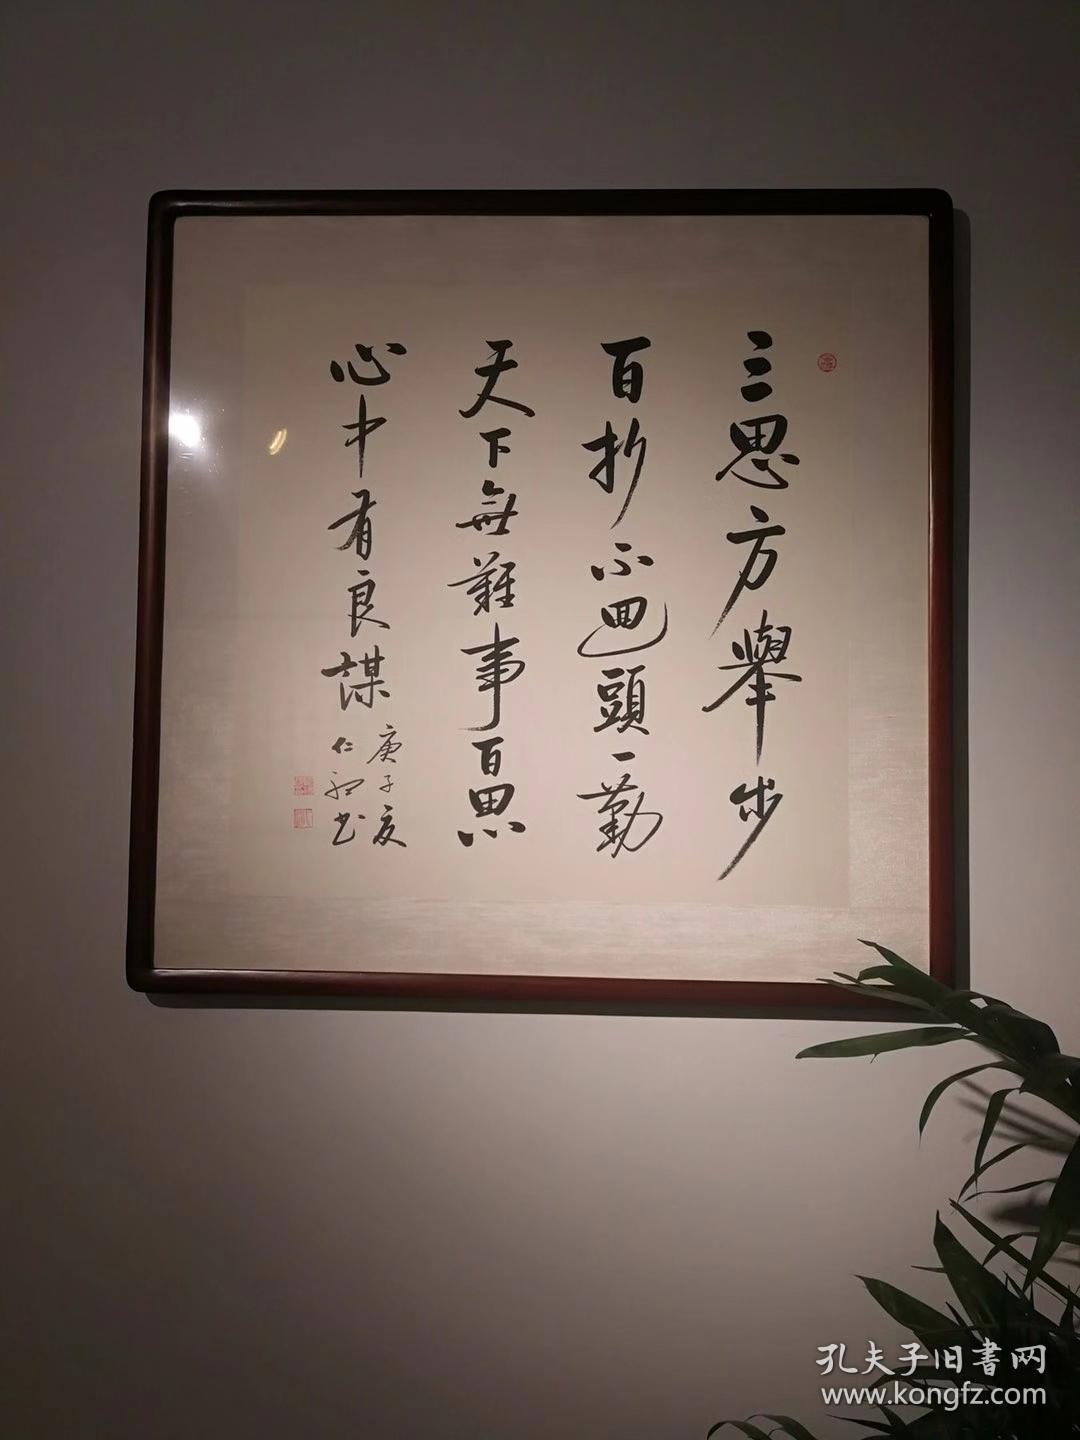 三思方舉步
百折不回頭一勤
天下無難事百思
心中有良謀
庚子夏
仁
书
孔夫子旧書网
www.kongfz.com